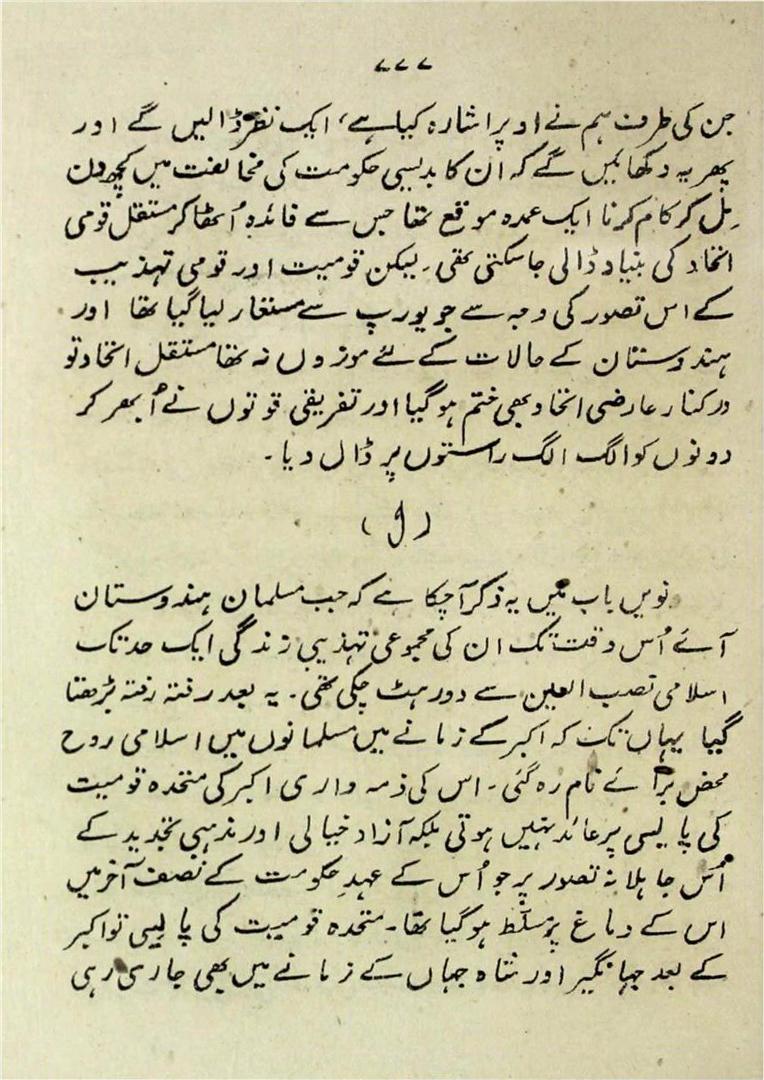 ۷۷۷
جن کی طرف ہم نے اوپر اشارہ کیا ہے، ایک نظر ڈالیں گے اور
پھر یہ دکھائیں گے کہ ان کا بدیسی حکومت کی مخالفت میں کچھ دن
مِل کر کام کرنا ایک عمدہ موقع تھا جس سے فائدہ اُٹھا کر مستقل قومی
اتحاد کی بنیاد ڈالی جا سکتی تھی۔ لیکن قومیت اور قومی تہذیب
کے اس تصور کی وجہ سے جو یورپ سے مستعار لیا گیا تھا اور
ہندوستان کے حالات کے لئے موزوں نہ تھا مستقل اتحاد تو
درکنار عارضی اتحاد بھی ختم ہو گیا اور تفریقی قوتوں نے اُبھر کر
دونوں کو الگ الگ راستوں پر ڈال دیا۔
(ل)
نویں باب میں یہ ذکر آ چکا ہے کہ جب مسلمان ہندوستان
آئے اُس وقت تک ان کی مجموعی تہذیبی زندگی ایک حد تک
اسلامی نصب العین سے دور ہٹ چکی تھی۔ یہ بعد رفتہ رفتہ بڑھتا
گیا یہاں تک کہ اکبر کے زمانے میں مسلمانوں میں اسلامی روح
محض برائے نام رہ گئی۔ اس کی ذمہ داری اکبر کی متحدہ قومیت
کی پالیسی پر عائد نہیں ہوتی بلکہ آزاد خیالی اور مذہبی تجدید کے
اُس جاہلانہ تصور پر جو اُس کے عہدِ حکومت کے نصف آخر میں
اس کے دماغ پر مسلّط ہو گیا تھا۔ متحدہ قومیت کی پالیسی تو اکبر
کے بعد جہانگیر اور شاہ جہاں کے زمانے میں بھی جاری رہی